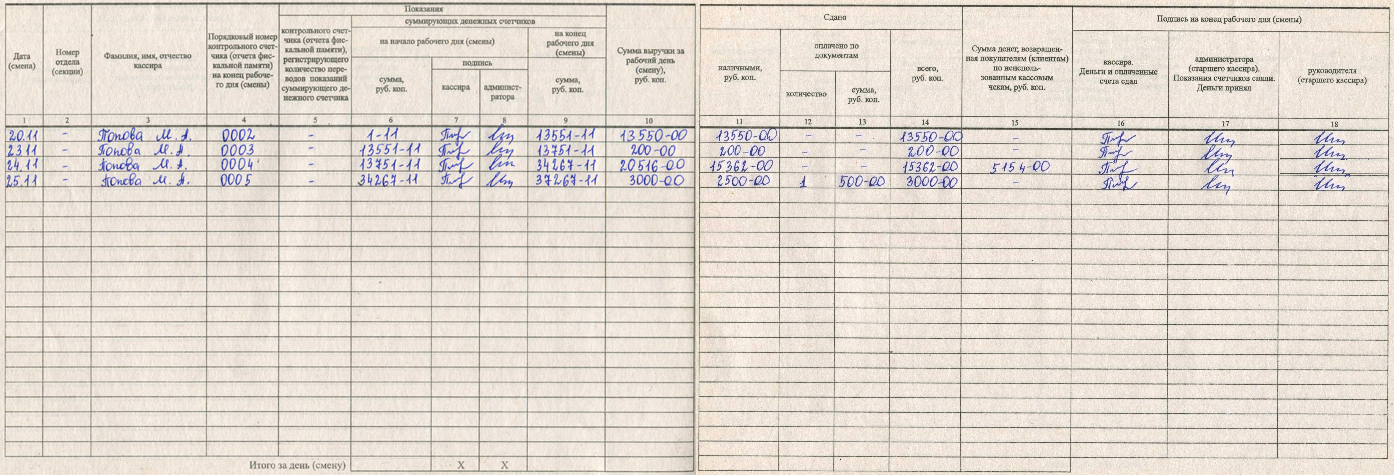 Показания
суммирующих денежных счетчиков
Дата (смена)
Номер отдела (секции)
Фамилия, имя, отчество кассира
Порядковый номер контрольного счетчика (отчета фискальной памяти) на конец рабочего дня (смены)
контрольного счетчика (отчета фискальной памяти), регистрирующего количество переводов показаний суммирующего денежного счетчика
на начало рабочего дня (смены)
на конец рабочего дня (смены)
сумма, руб. коп.
подпись
кассира
администратора
сумма, руб. коп.
Сумма выручки за рабочий день (смену), руб. коп.
Сдано
наличными, руб. коп.
оплачено по документам
количество
сумма, руб. коп.
всего, руб. коп.
Сумма денег, возвращенная покупателям (клиентам) по неиспользованным кассовым чекам, руб. коп.
Подпись на конец рабочего дня (смены)
кассира. Деньги и оплаченные счета сдал
администратора (старшего кассира). Показания счетчиков сняли. Деньги принял
руководителя (старшего кассира)
1 2 3 4 5 6 7 8 9 10 11 12 13 14 15 16 17 18
20.11 – Попова М. А. 0002 – 1-11 13551-11 13550-00 13550-00 – – 13550-00 –
23.11 – Попова М. А. 0003 – 13551-11 13751-11 200-00 200-00 – – 200-00 –
24.11 – Попова М. А. 0004 – 13751-11 34267-11 20516-00 15362-00 – – 15362-00 5154-00
25.11 – Попова М. А. 0005 – 34267-11 37267-11 3000-00 2500-00 1 500-00 3000-00 –
Итого за день (смену) X X